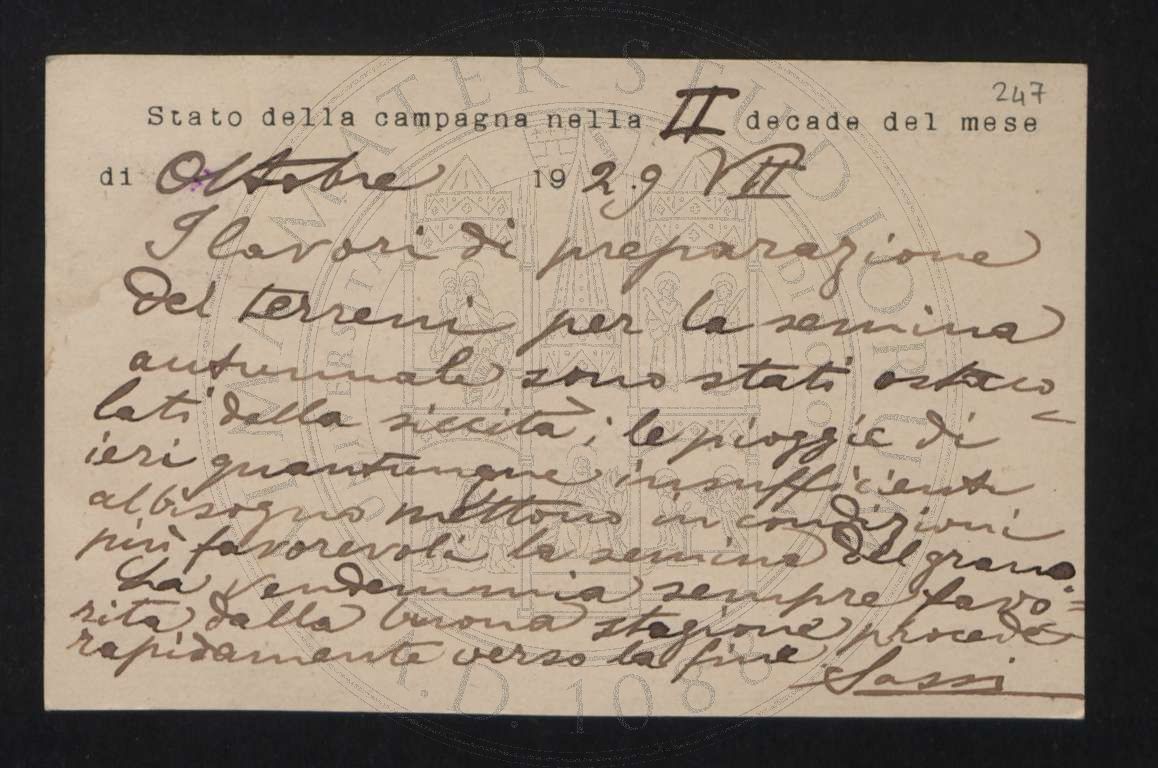 247
Stato della campagna nella II decade del mese
di Ottobre 1929 VII
I lavori di preparazione
dei terreni per la semina
autunnale sono stati ostaco
lati dalla siccità; le pioggie di
ieri quantunque insufficienti
al bisogno mettono in condizioni
più favorevoli la semina del grano.
La vendemmia sempre favo=
rita dalla buona stagione procede
rapidamente verso la fine
Sassi
ALMA MATER STUDIORUM
A.D. 1088